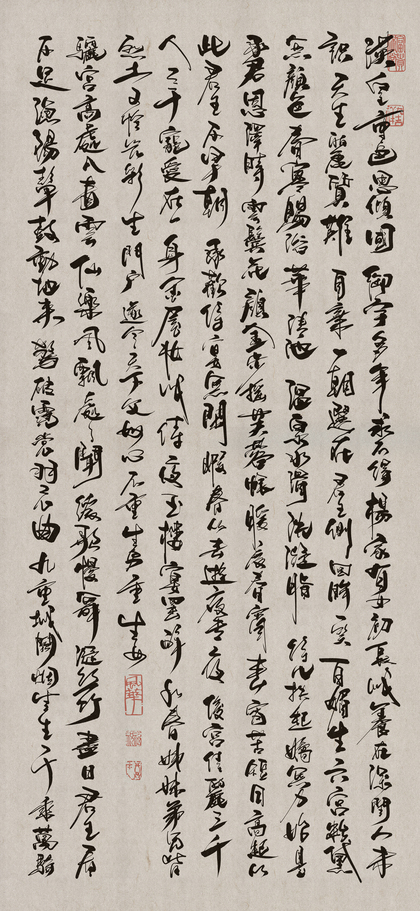 漢皇重色思傾國御宇多年求不得楊家有女初長成養在深閨人未
識天生麗質難自棄一朝選在君王側回眸一笑百媚生六宮粉黛
無顏色春寒賜浴華清池溫泉水滑洗凝脂侍兒扶起嬌無力始是
承君恩澤時雲鬢花顏金步搖芙蓉帳暖度春宵春宵苦短日高起從
此君王不早朝承歡侍宴無閒暇春從春遊夜專夜後宮佳麗三千
人三千寵愛在一身金屋妝成侍夜玉樓宴罷醉和春姊妹弟兄皆
列土可憐光彩生門戶遂令天下父母心不重生男重生女
驪宮高處入青雲仙樂風飄處處聞緩歌慢舞凝絲竹盡日君王看
不足漁陽鼙鼓動地來驚破霓裳羽衣曲九重城闕煙塵生千乘萬騎